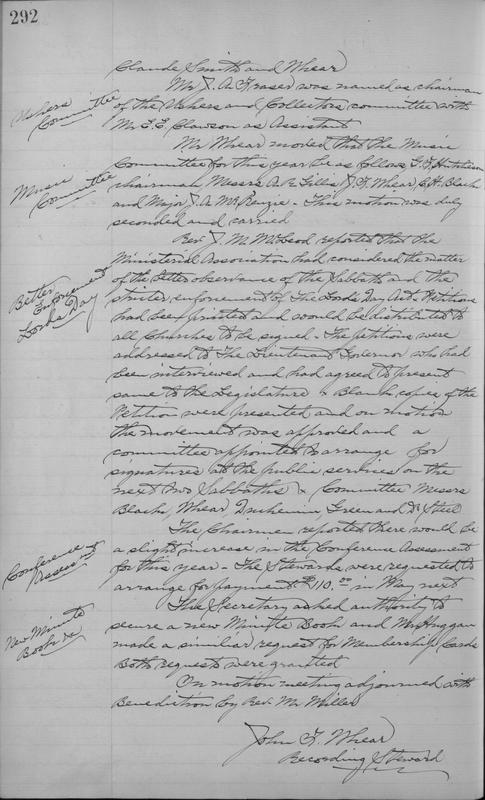 292
Claude Smith and Whear
Ushers
Committee
Mr J. A. Fraser was named as chairman
of the Ushers and Collectors committee with
Mr E. E. Clawson as Assistant
Mr Whear moved that the Music
Music
Committee
Committee for this year be as follows G. F. Hutcheson
chairman Messrs A. E. Gillis J. F. Whear, C. H. Black
and Major J. A. McKenzie - This motion was duly
seconded and carried
Rev. J. M. McLeod reported that the
Ministerial Association had considered the matter
Better
Enforcement
Lords Day
of the better observance of the Sabbath and the
stricter enforcement of The Lords Day Act - Petitions
had been printed and would be distributed to
all Churches to be signed - The petitions were
addressed to The Lieutenant Governor who had
been interviewed and had agreed to present
same to the Legislature & Blank copies of the
Petition were presented and on motion
the movement was approved and a
committee appointed to arrange for
signatures at the public services on the
next two Sabbaths & Committee Messrs
Black, Whear, Duchemin Green and Dr Steel
Conference
Assess
The Chairman reported there would be
a slight increase in the Conference Assessment
for this year - The Stewards were requested to
arrange for payment $110.00 in May next
New Minute
Books
The Secretary asked authority to
secure a new Minute Book and Mr Huggan
made a similar request for Membership Cards
Both requests were granted
On motion meeting adjourned with
Benediction by Rev. Mr Miller
John F. Whear
Recording Steward